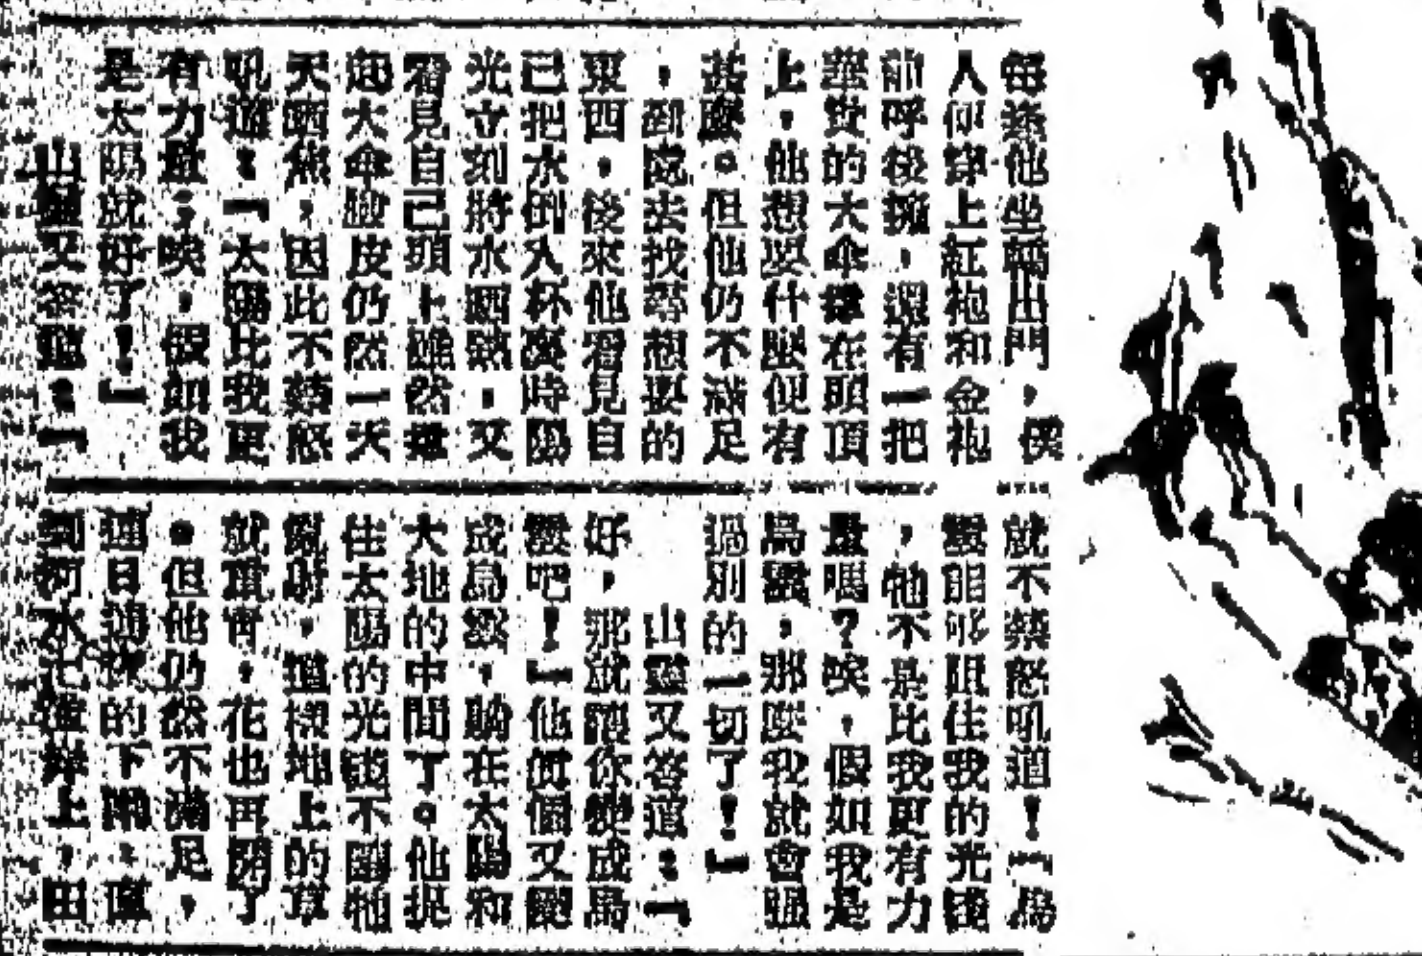 每逢他坐轎出門，僕
人們穿上紅袍和金袍
前呼後擁，還有一把
華貴的大傘撐在頭頂
上，他想要什麼便有
甚麼。但他仍不滿足
，到處去找尋想要的
東西，後來他看見自
己把水倒入杯裏時陽
光立刻將水晒熱，又
看見自己頭上雖然撐
起大傘臉皮仍然一天
天晒焦，因此不禁怒
吼道：「太陽比我更
有力量；唉，假如我
是太陽就好了！」
山靈又答道：「
就不禁怒吼道！「烏
雲能夠阻住我的光線
，牠不是比我更有力
量嗎？唉，假如我是
烏雲，那麼我就會强
過別的一切了！」
山靈又答道：「
好，那就讓你變成烏
雲吧！」他真個又變
成烏雲，躺在太陽和
大地的中間了。他捉
住太陽的光線不讓牠
亂射，這樣地上的草
就重青，花也再開了
。但他仍然不滿足，
連日的下雨，直
到河水上，田